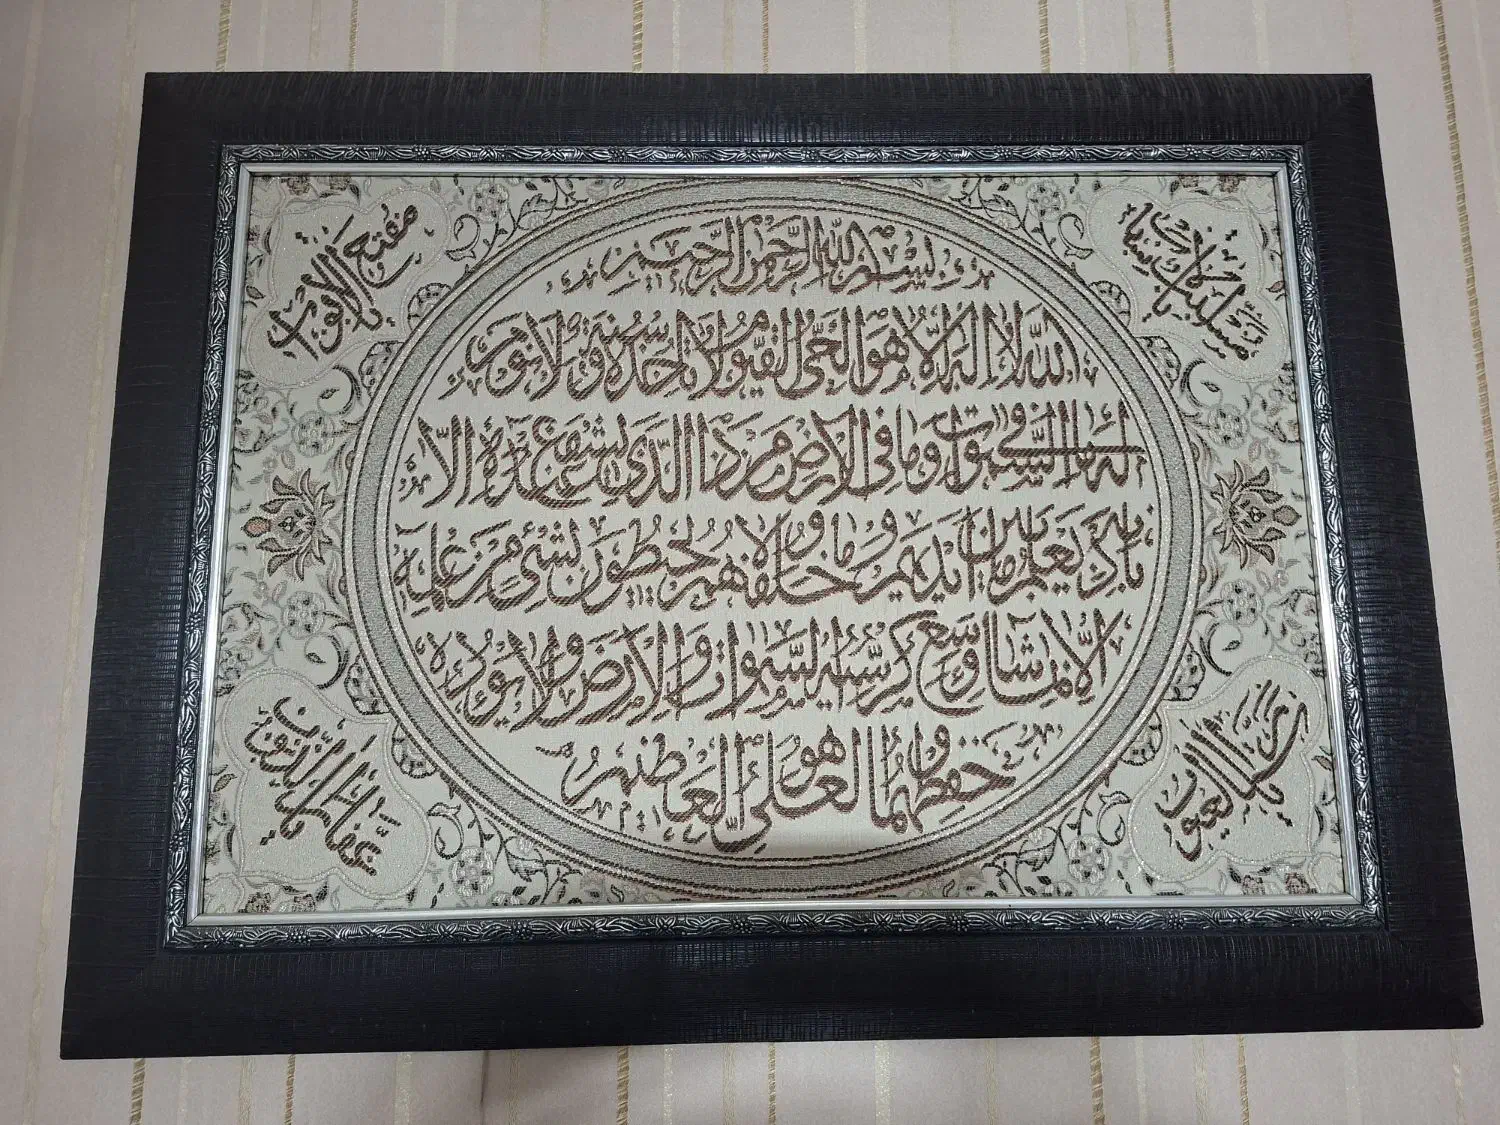 بسم الله الرحمن الرحيم
الله لا اله الا هو الحي القيوم لا تاخذه سنة ولا نوم
له ما في السموات وما في الارض من ذا الذي يشفع عنده الا
باذنه يعلم ما بين ايديهم وما خلفهم ولا يحيطون بشئ من علمه
الا بما شاء وسع كرسيه السموات والارض ولا يؤده
حفظهما وهو العلي العظيم
يا مفتح الابواب
يا مسبب الاسباب
يا غفار الذنوب
يا ستار العيوب